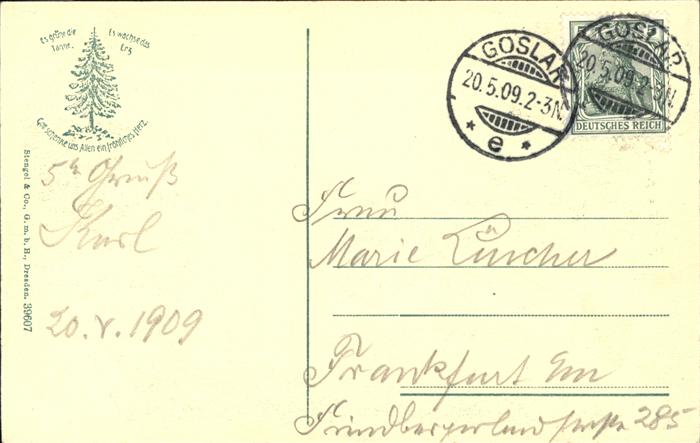 Es grüne die
Tanne,
Es wachse das
Erz
Gott schenke uns Allen ein fröhliches Herz.
Stengel & Co., G.m.b.H., Dresden. 39607
5ter Gruß
Karl
20.V.1909
GOSLAR
20.5.09.2-3N.
* e *
GOSLAR
20.5.09.2-3N.
DEUTSCHES REICH
Frau
Marie
Frankfurt a/m
285